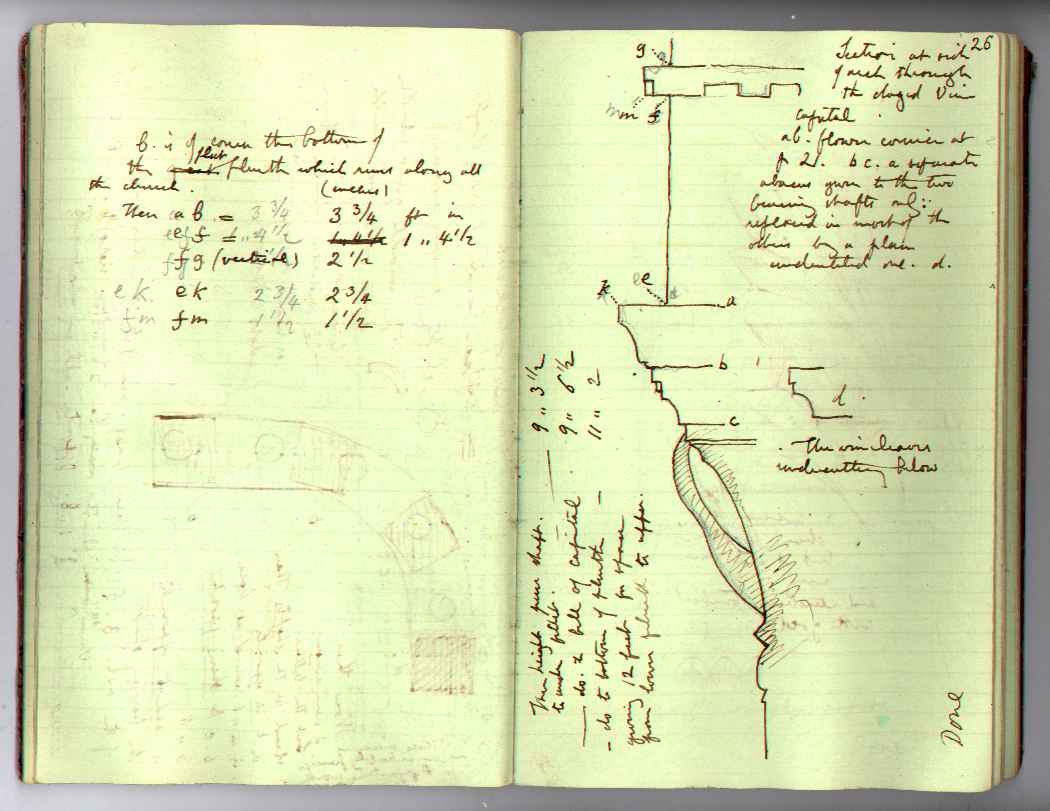 b. is of course the bottom of
the flat plinth which runs along all
the church. (inches)
Then ab = 3 3/4 3 3/4 ft in
ef = 1,, 4 1/2 1 ,, 4 1/2
fg (vertical) 2 1/2
ek ek 2 3/4 2 3/4
fm fm 1 1/2 1 1/2
26
Section at side
of arch through
the
capital
ab. flown cornice at
p 21. bc. a separate
abacus given to the two
bearing shafts only:
replaced in most of the
others by a plain
undentiled one. d.
g
m f
k e
a
b
c
d
The vine leaves
undercutting below
Then height pure shaft. 9 ,, 3 1/2
to under fillet.
do. to bell of capital 9 ,, 6 1/2
do to bottom of plinth 11 ,, 2
giving 12 feet for space
from lower plinth to upper.
Done